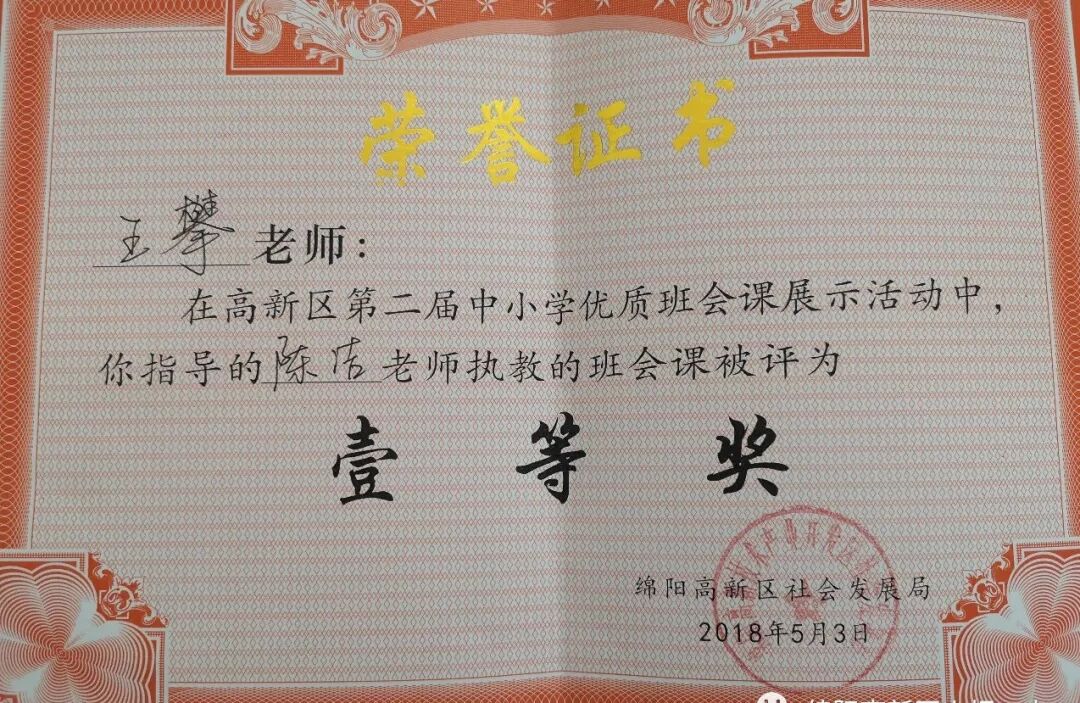 荣誉证书
王攀老师：
在高新区第二届中小学优质班会课展示活动中，
你指导的陈洁老师执教的班会课被评为
壹等奖
绵阳高新区社会发展局
2018年5月3日